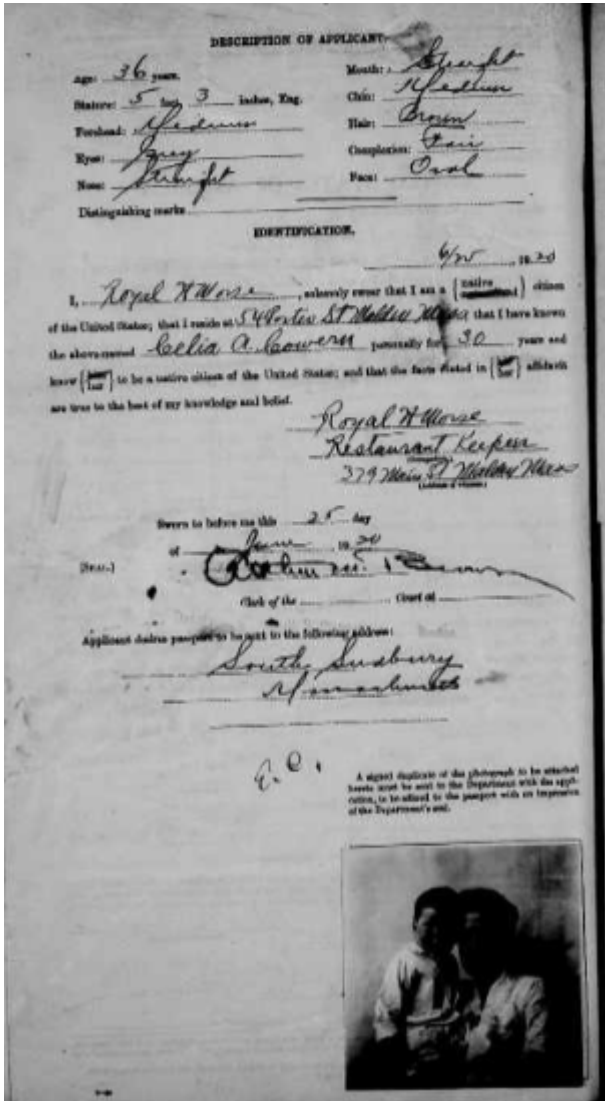 DESCRIPTION OF APPLICANT.
Age: 36 years.
Mouth: Straight
Stature: 5 feet 3 inches, Eng.
Chin: Medium
Forehead: Medium
Hair: Brown
Eyes: Grey
Complexion: Fair
Nose: Straight
Face: Oval
Distinguishing marks
IDENTIFICATION.
6/25, 1920
I, Royal H Morse, solemnly swear that I am a {native} citizen
of the United States; that I reside at 54 Porter St Malden Mass that I have known
the above-named Celia A. Cowern personally for 30 years and
know {him her} to be a native citizen of the United States; and that the facts stated in {his her} affidavit
are true to the best of my knowledge and belief.
Royal H Morse
Restaurant Keeper
379 Main St Malden Mass
Sworn to before me this 25 day
of June, 1920
[SEAL.]
Clerk of the Court at
Applicant desires passport to be sent to the following address:
South Sudbury
Massachusetts
E.C.
A signed duplicate of the photograph to be attached
hereto must be sent to the Department with the appli-
cation, to be affixed to the passport with an impression
of the Department's seal.